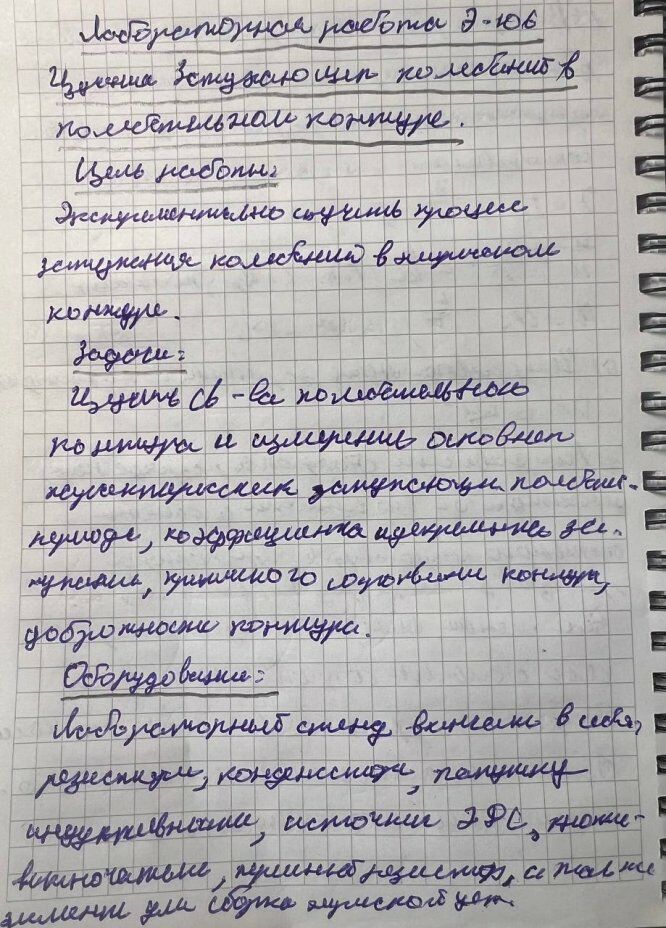 Лабораторная работа Э-10б
Изучение затухающих колебаний в
колебательном контуре.
Цель работы:
Экспериментально изучить процесс
затухания колебаний в контуре.
Задачи:
Изучить св-ва колебательного
контура и измерение основных
характеристик затухающих колебаний:
периода, коэффициента и декремента за-
тухания, критического сопротивления контура,
добротности контура.
Оборудование:
Лабораторный стенд, включает в себя,
резисторы, конденсаторы, катушку
индуктивности, источник ЭДС, кнопки-
выключатель, переменный резистор, а также
элементы для сборки цеп.